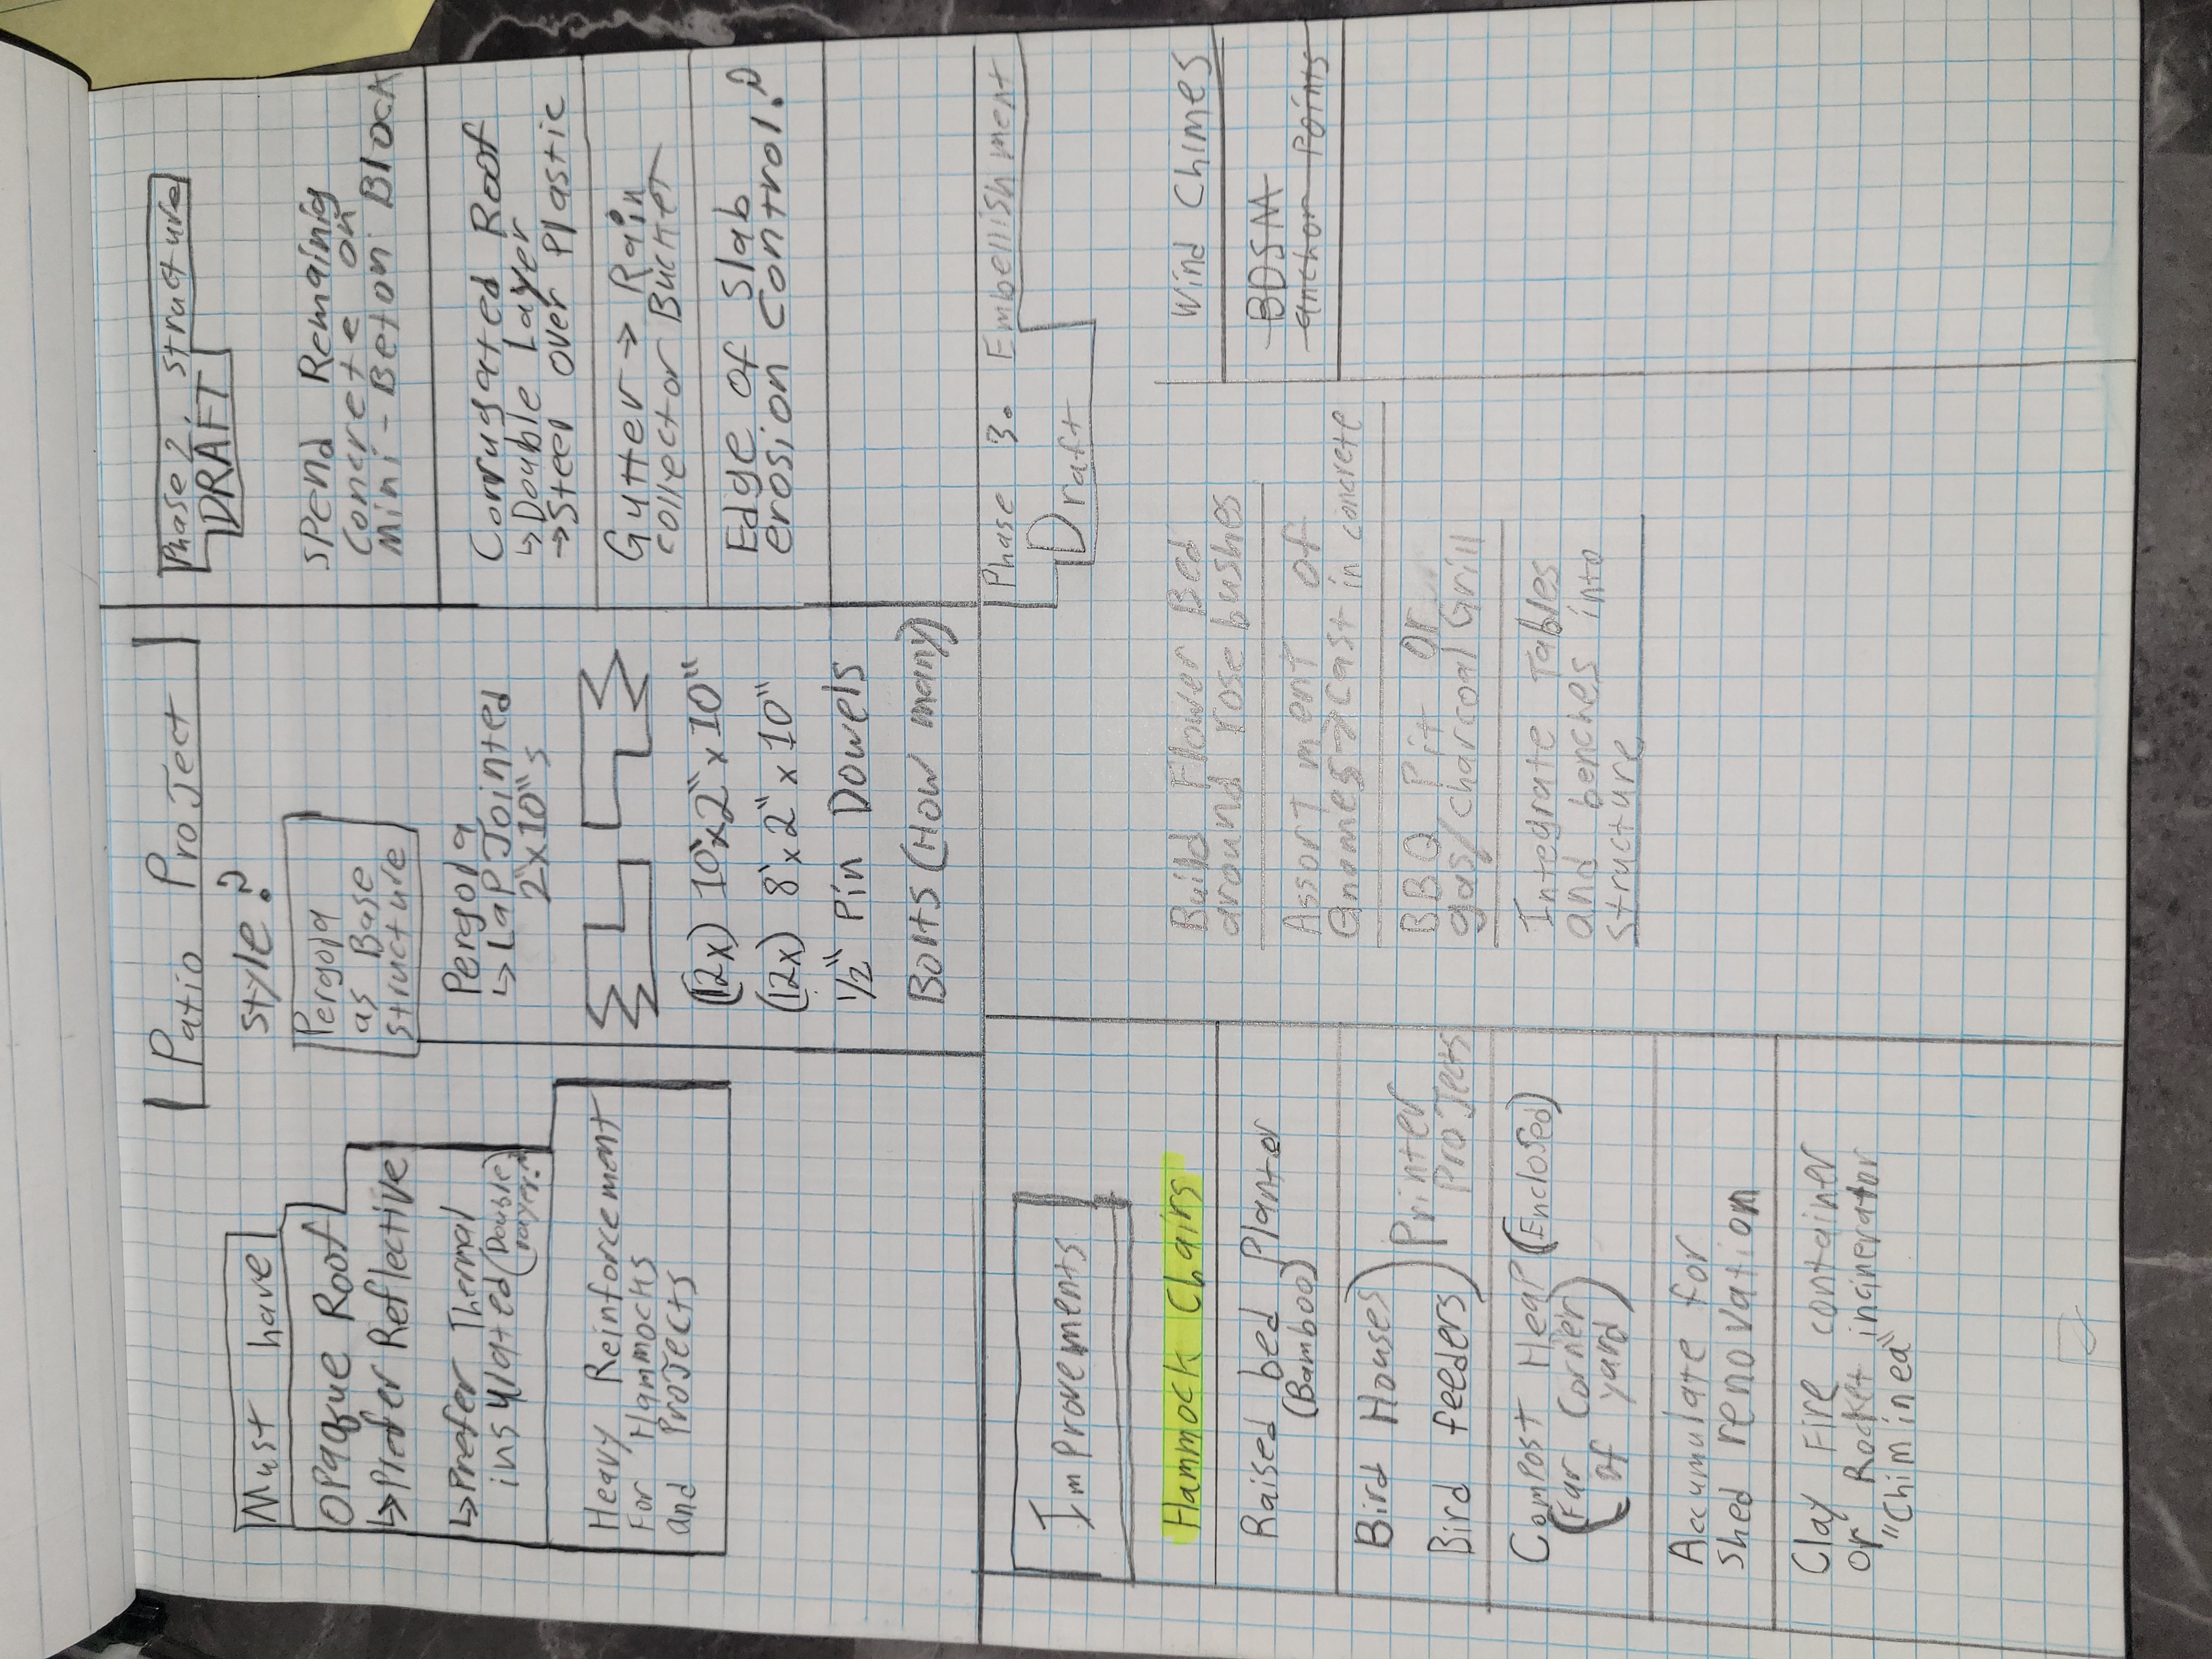 Patio ProJect
Style?
Must have
OPaque Roof
↳Prefer Reflective
↳Prefer Thermal
insulated (Double layer?)
Heavy Reinforcement
For Hammocks
and ProJects
Pergola
as Base
structure
Pergola
↳LaP Jointed
2"x10"s
(12x) 10'x2"x10"
(12x) 8'x2"x10"
1/2" Pin Dowels
Bolts (How many)
Phase 2. structure
DRAFT
SPend Remaining
Concrete on
Mini-Beton Block
Corrugated Roof
↳Double Layer
→Steel over Plastic
Gutter → Rain
collector Bucket
Edge of Slab
erosion control?
ImProvements
Hammock Chairs
Raised bed Planter
(Bamboo)
Bird Houses) Printer
Bird feeders) ProJects
ComPost HeaP (Enclosed)
(Far Corner
of yard)
Accumulate for
Shed renovation
Clay Fire container
or Rocket incinerator
"Chiminea"
Phase 3. Embellishment
Draft
Build Flower Bed
around rose bushes
Assortment of
Gnomes→Cast in concrete
BBQ Pit or
gas/charcoal Grill
Integrate Tables
and benches into
structure
Wind Chimes
BDSM
anchor Points